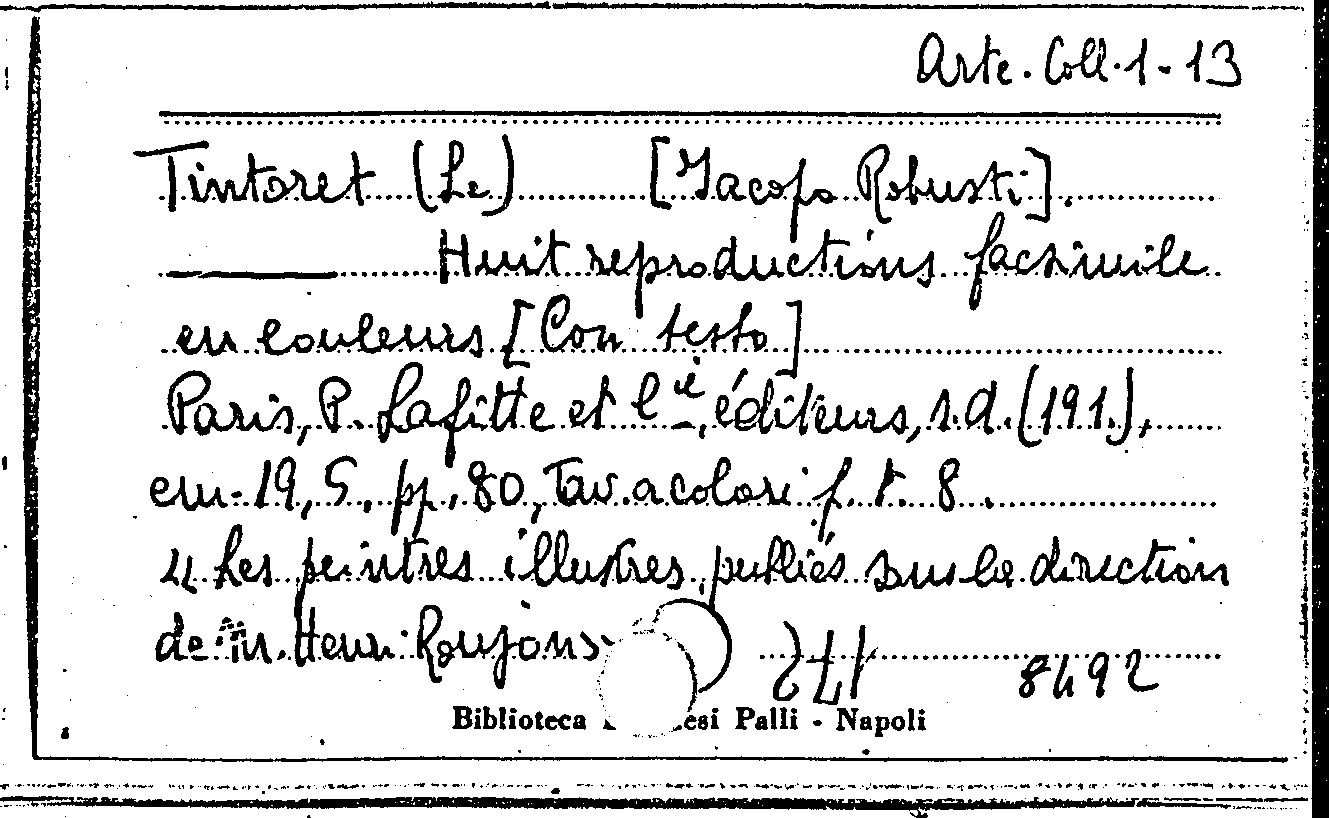 Arte. Coll. 1 - 13
Tintoret (Le) [Jacopo Robusti].
Huit reproductions facsimile
en couleurs [Con testo]
Paris, P. Lafitte et C.ie, éditeurs, s.d. (191.),
cm. 19,5, pp. 80, Tav. a colori f. t. 8.
"Les peintres illustres, publiés sous la direction
de M. Henri Roujon"
8492
Biblioteca Palli - Napoli